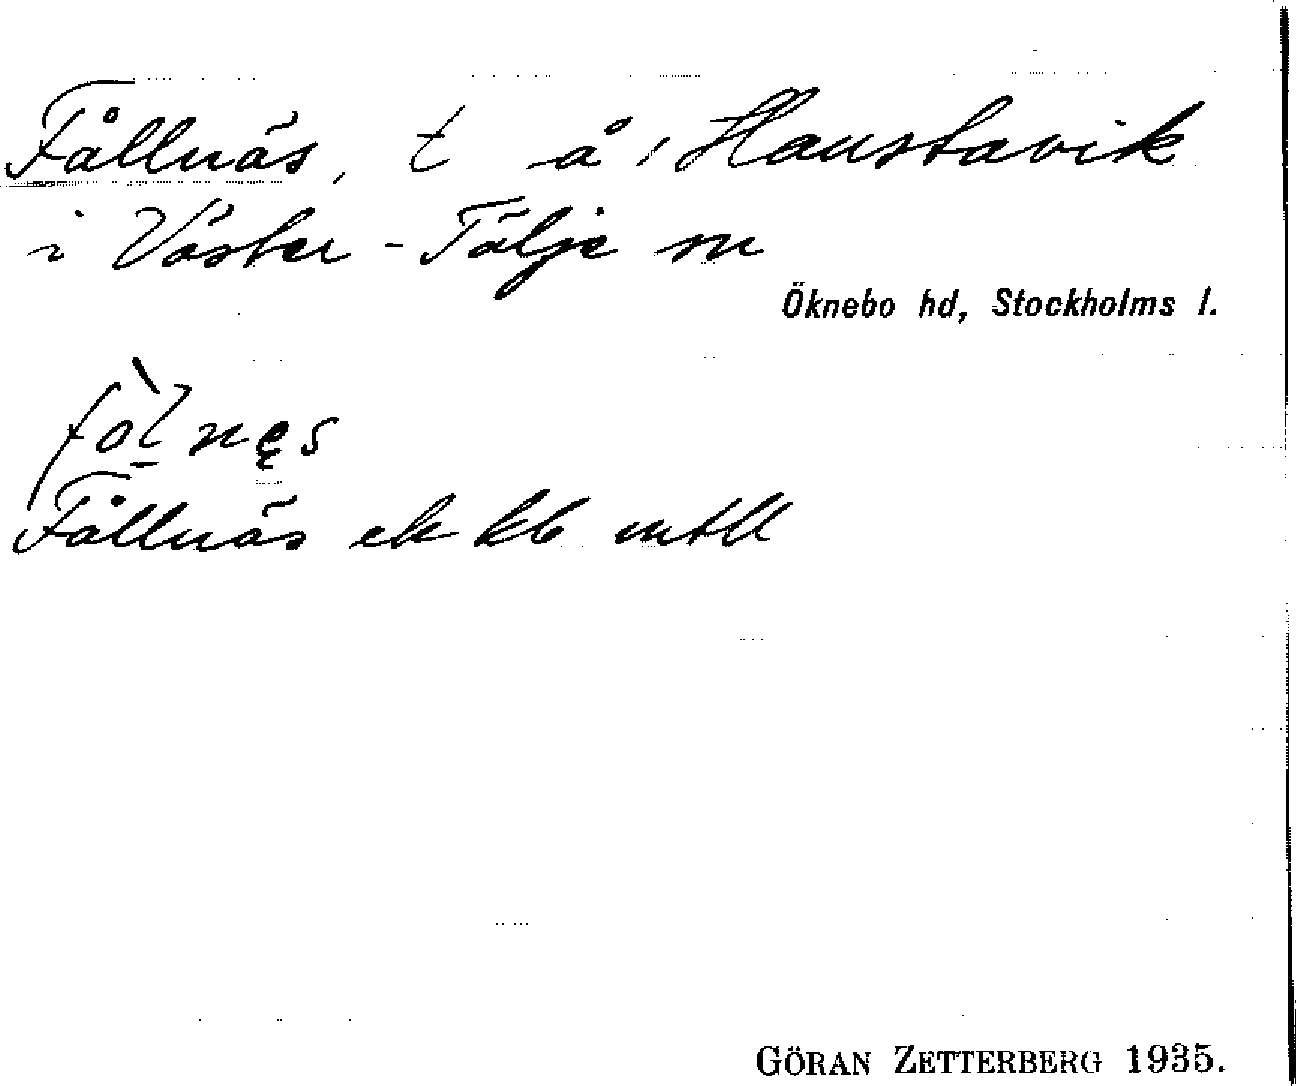 Fållnäs, t å, Haustavik
i Väster-Tälje sn
Öknebo hd, Stockholms l.
fòlnęs
Fållnäs ek kb mtll
GÖRAN ZETTERBERG 1935.